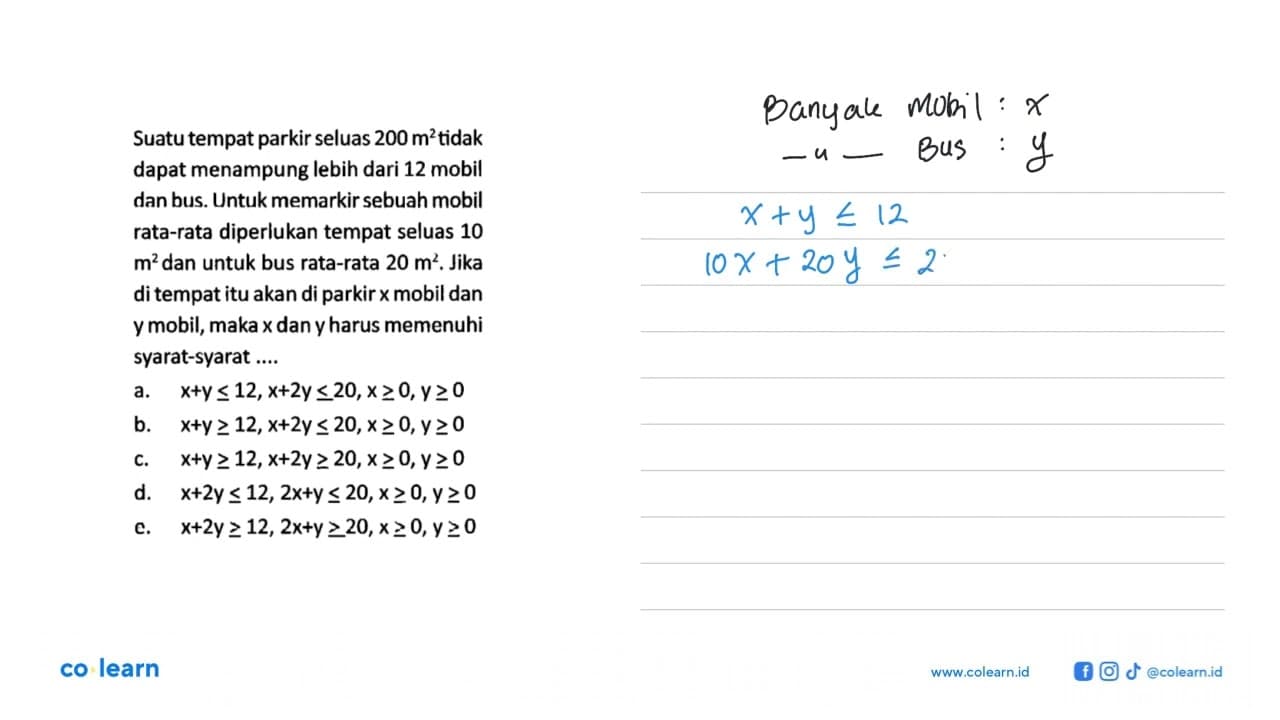 Suatu tempat parkir seluas 200 m² tidak
dapat menampung lebih dari 12 mobil
dan bus. Untuk memarkir sebuah mobil
rata-rata diperlukan tempat seluas 10
m² dan untuk bus rata-rata 20 m². Jika
di tempat itu akan di parkir x mobil dan
y mobil, maka x dan y harus memenuhi
syarat-syarat ....
a. x+y ≤ 12, x+2y ≤ 20, x ≥ 0, y ≥ 0
b. x+y ≥ 12, x+2y ≤ 20, x ≥ 0, y ≥ 0
c. x+y ≥ 12, x+2y ≥ 20, x ≥ 0, y ≥ 0
d. x+2y ≤ 12, 2x+y ≤ 20, x ≥ 0, y ≥ 0
e. x+2y ≥ 12, 2x+y ≥ 20, x ≥ 0, y ≥ 0
Banyak Mobil : x
— u — Bus : y
x + y ≤ 12
10x + 20y ≤ 2
co learn
www.colearn.id
@colearn.id